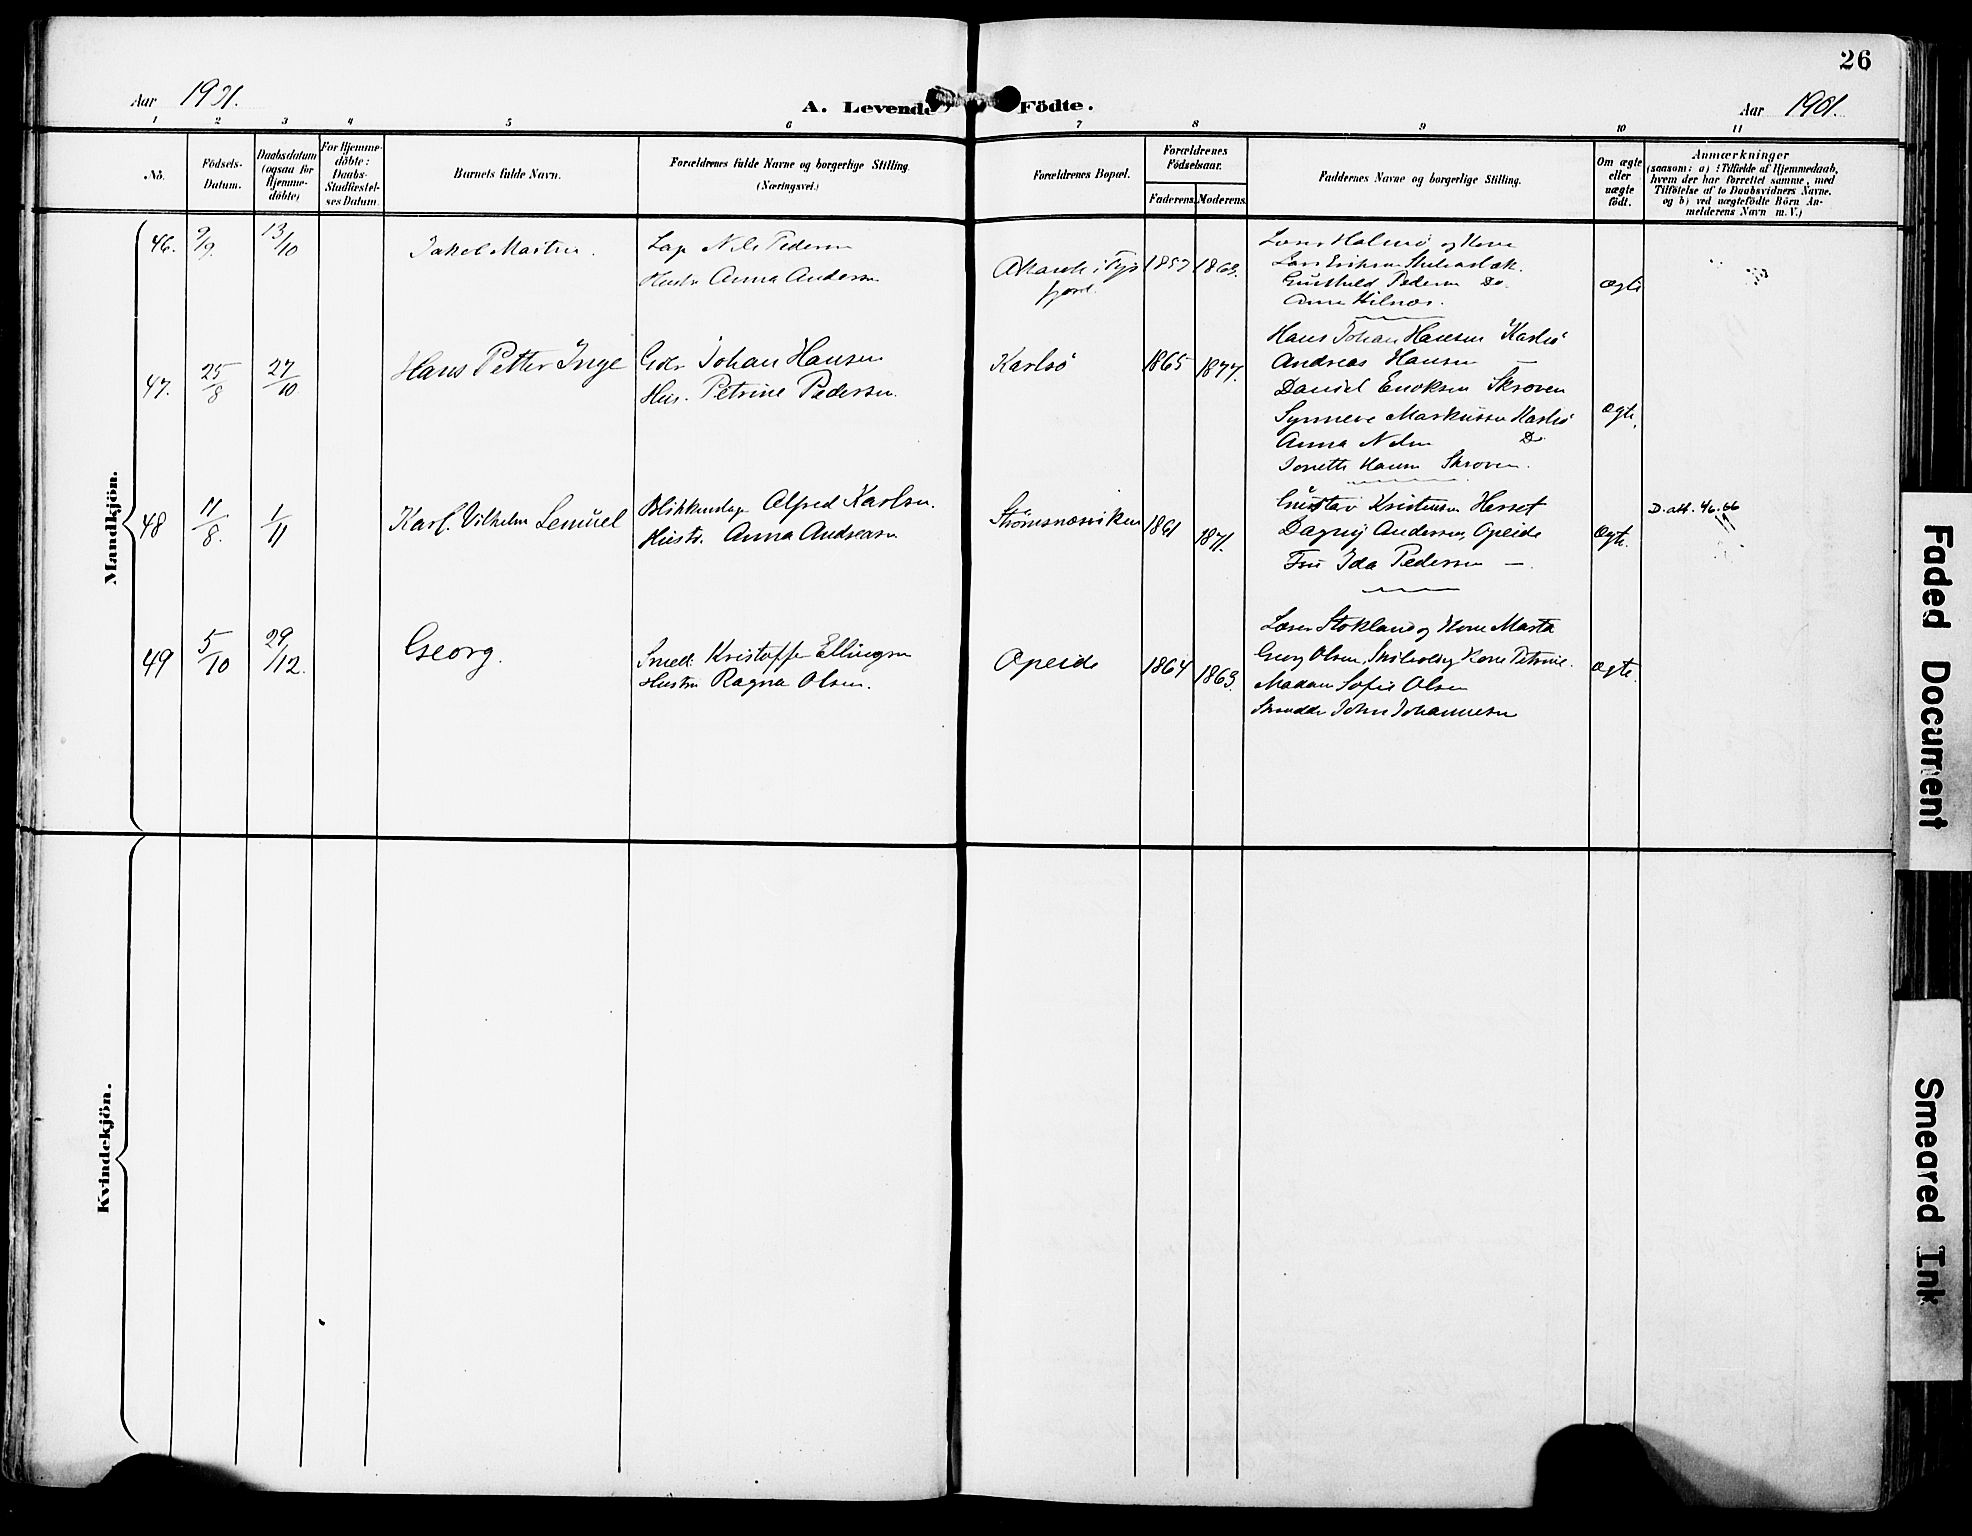 26
Aar 1901.
A. Levende Födte.
Aar 1901.
1 2 3 4 5 6 7 8 9 10 11
No.
Födsels-Datum.
Daabsdatum (ogsaa for Hjemme-döbte)
For Hjemme-döbte: Daabs-Stadfæstel-ses Datum.
Barnets fulde Navn.
Forældrenes fulde Navne og borgerlige Stilling.
(Næringsvei.)
Forældrenes Bopæl.
Forældrenes Födselsaar.
Faderens. Moderens.
Faddernes Navne og borgerlige Stilling.
Om ægte eller uægte födt.
Anmærkninger
(saasom: a) i Tilfælde af Hjemmedaab,
hvem der har forrettet samme, med
Tilföielse af to Daabsvidners Navne.
og b) ved uægtefödte Börn An-
melderens Navn m. V.)
Mandkjön.
46. 9/9. 13/10
Jakob Martin.
Lap Nils Pedersen
Hustr Anna Andersen
i Tys
fjord.
1857 1863.
Holmø og Kone
Lars Eriksen
Gunhild Pedersen Do.
Anne
Ægte
47. 25/8 27/10
Hans Petter Inge
Gdr Johan Hansen
Hus. Petrine Pedersen.
Karlsö
1865 1877.
Hans Johan Hansen Karlsö
Andreas Hansen —
Daniel Enoksen Skroven
Synneve Markussen Karlsö
Anna Nilsen Do
Jonette Hansen Skroven.
Ægte.
48 11/8. 1/11
Karl. Vilhelm Lemuel
Blikkenslager Alfred Karlsen.
Hustr. Anna Andreasen
Strömsnesviken
1861 1871.
Gustav Kristensen Hesset
Dagny Andersen, Opeide
Fru Ida Pedersen —.
Ægte.
D. att. 46. 66
49 5/10 29/12.
Georg.
Smed Kristoffer Ellingsen
Hustru Ragna Olsen.
Opeide
1864 1863.
Stokland og Kone Marta
Georg Olsen, Kone Petrine.
Madam Sofie Olsen
Skrædder John Johannesen
Ægte.
Kvindekjön.
Faded Document
Smeared Ink